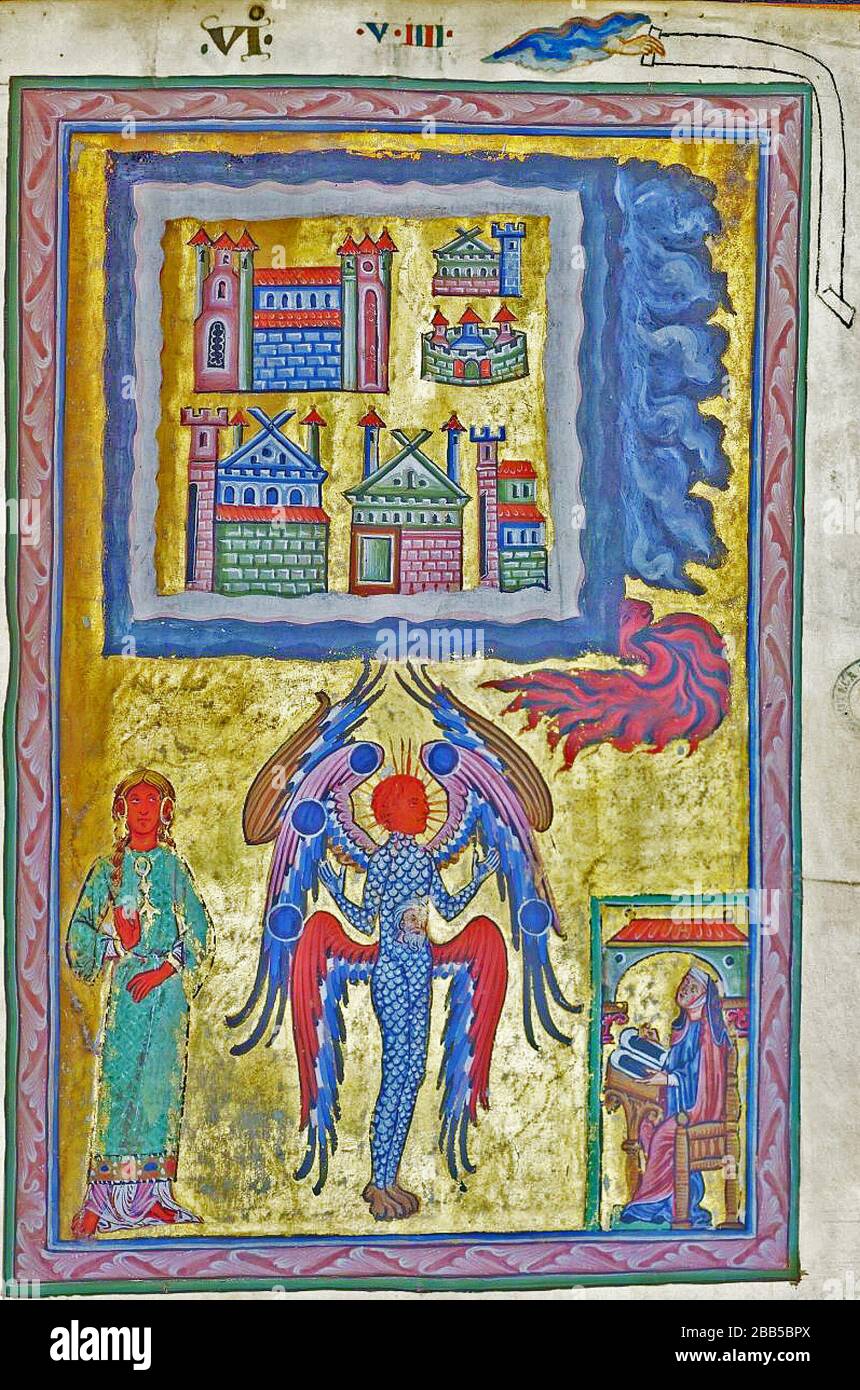 ·VI· ·V·IIII·
alamy
Image ID: 2BB5BPX
www.alamy.com